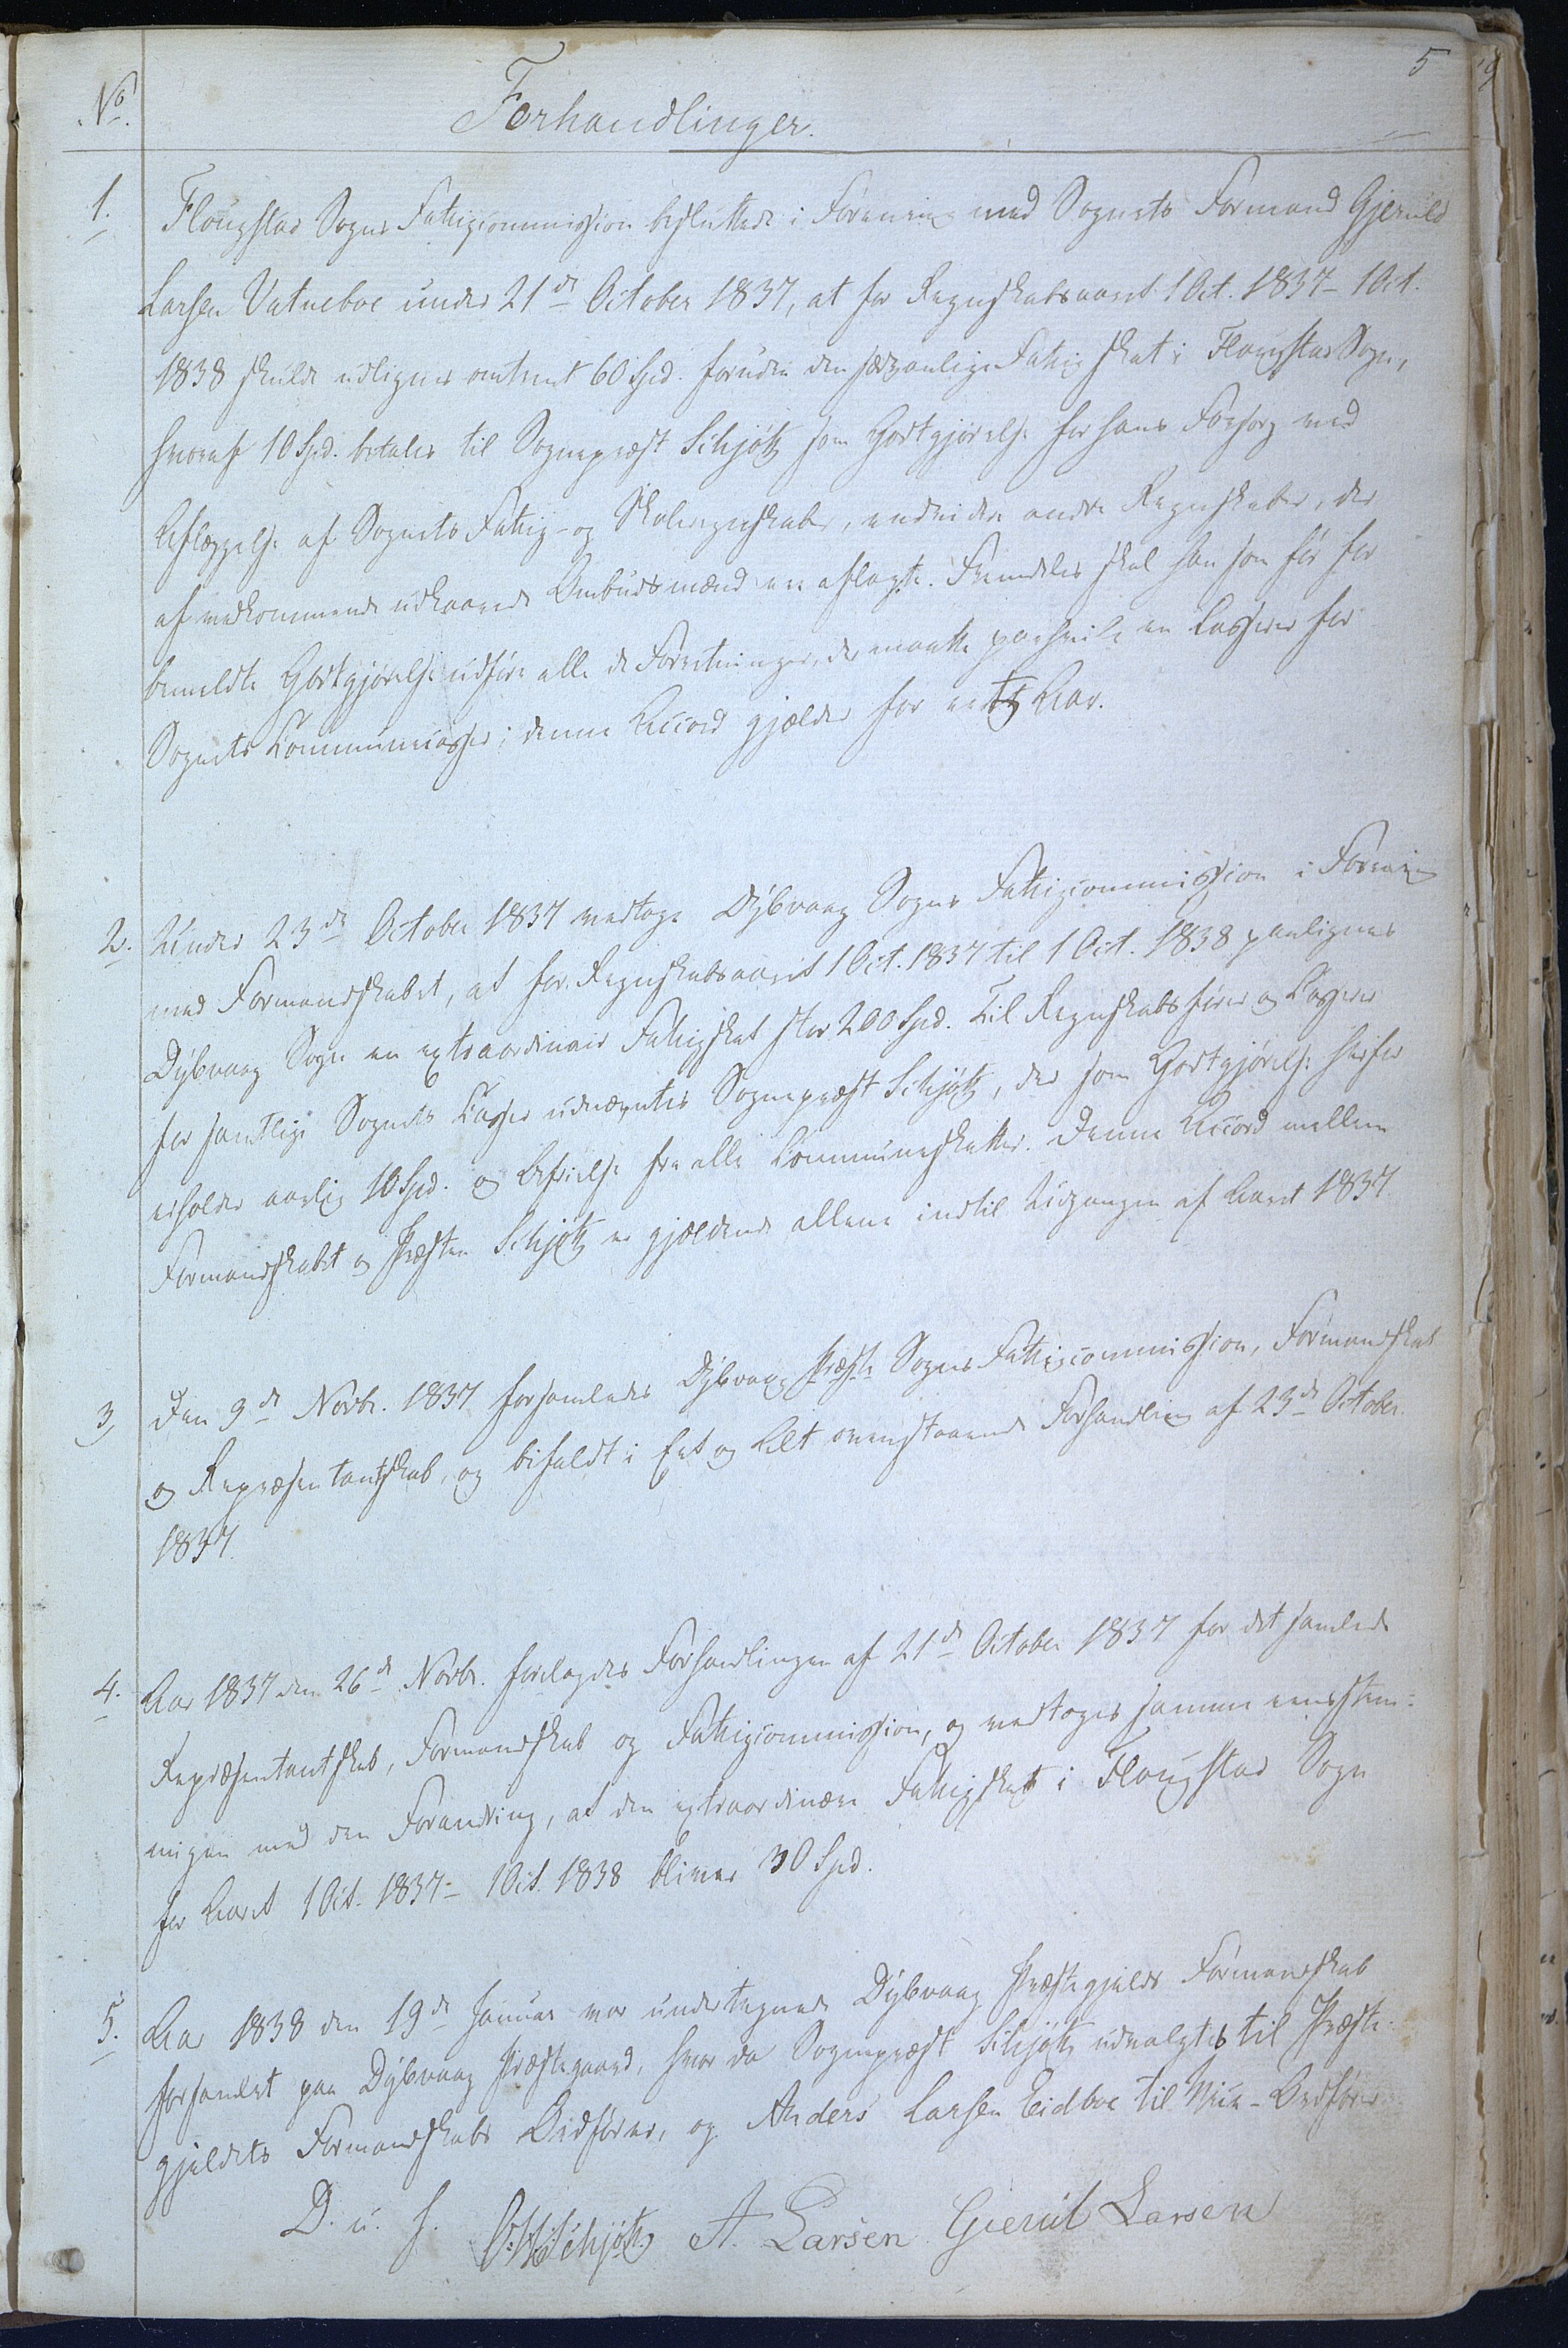 5
No.
Forhandlinger.
1. Flougstad Sogns Fattigcommission besluttede i Forening med Sognets Formand Gjeruld
Larsen Vatneboe under 21de October 1837, at for Regnskabsaaret 1 Oct. 1837 - 1 Oct.
1838 skulde udlignes omtrent 60 Spd. foruden den sædvanlige Fattigskat i Flougstad Sogn,
hvoraf 10 Spd. betales til Sognepræst Schjøtz som Godtgjørelse for hans Forsorg med
Aflæggelse af Sognets Fattig- og Skoleregnskaber, endvidere andre Regnskaber, der
af vedkommende udkaarede Ombudsmænd ere aflagte. Fremdeles skal han som før for
bemeldte Godtgjørelse udføre alle de Forretninger, der maatte paahvile en Casserer for
Sognets Communecasser; denne Accord gjælder for eet Aar.
2. Under 23de October 1837 vedtoge Dybvaag Sogns Fattigcommission i Forening
med Formandskabet, at for Regnskabsaaret 1 Oct. 1837 til 1 Oct. 1838 paalignes
Dybvaag Sogn en extraordinair Fattigskat stor 200 Spd. Til Regnskabsfører og Casserer
for samtlige Sognets Casser udnævntes Sognepræst Schjøtz, der som Godtgjørelse herfor
erholder aarlig 10 Spd. og Befrielse fra alle Communeskatter. Denne Accord mellem
Formandskabet og Præsten Schjøtz er gjældende allene indtil Udgangen af Aaret 1837
3) Den 9de Novbr. 1837 forsamledes Dybvaag Præste Sogns Fattigcommission, Formandskab
og Repræsentantskab, og bifaldt i Eet og Alt ovenstaaende Forhandling af 23de October
1837.
4. Aar 1837 den 26de Novbr. forelagdes Forhandlingen af 21de October 1837 for det samlede
Repræsentantskab, Formandskab og Fattigcommission, og vedtoges samme eensstem-
migen med den Forandring, at den extraordinære Fattigskat i Flougstad Sogn
for Aaret 1 Oct. 1837 - 1 Oct. 1838 bliver 30 Spd.
5. Aar 1838 den 19de Januar var undertegnede Dybvaag Præstegjelds Formandskab
forsamlet paa Dybvaag Præstegaard, hvor da Sognepræst Schjøtz udvalgtes til Præste-
gjeldets Formandskabs Ordfører, og Anders Larsen Eidboe til Vice-Ordfører
D. u. s. Schjøtz A. Larsen Gieruld Larsen